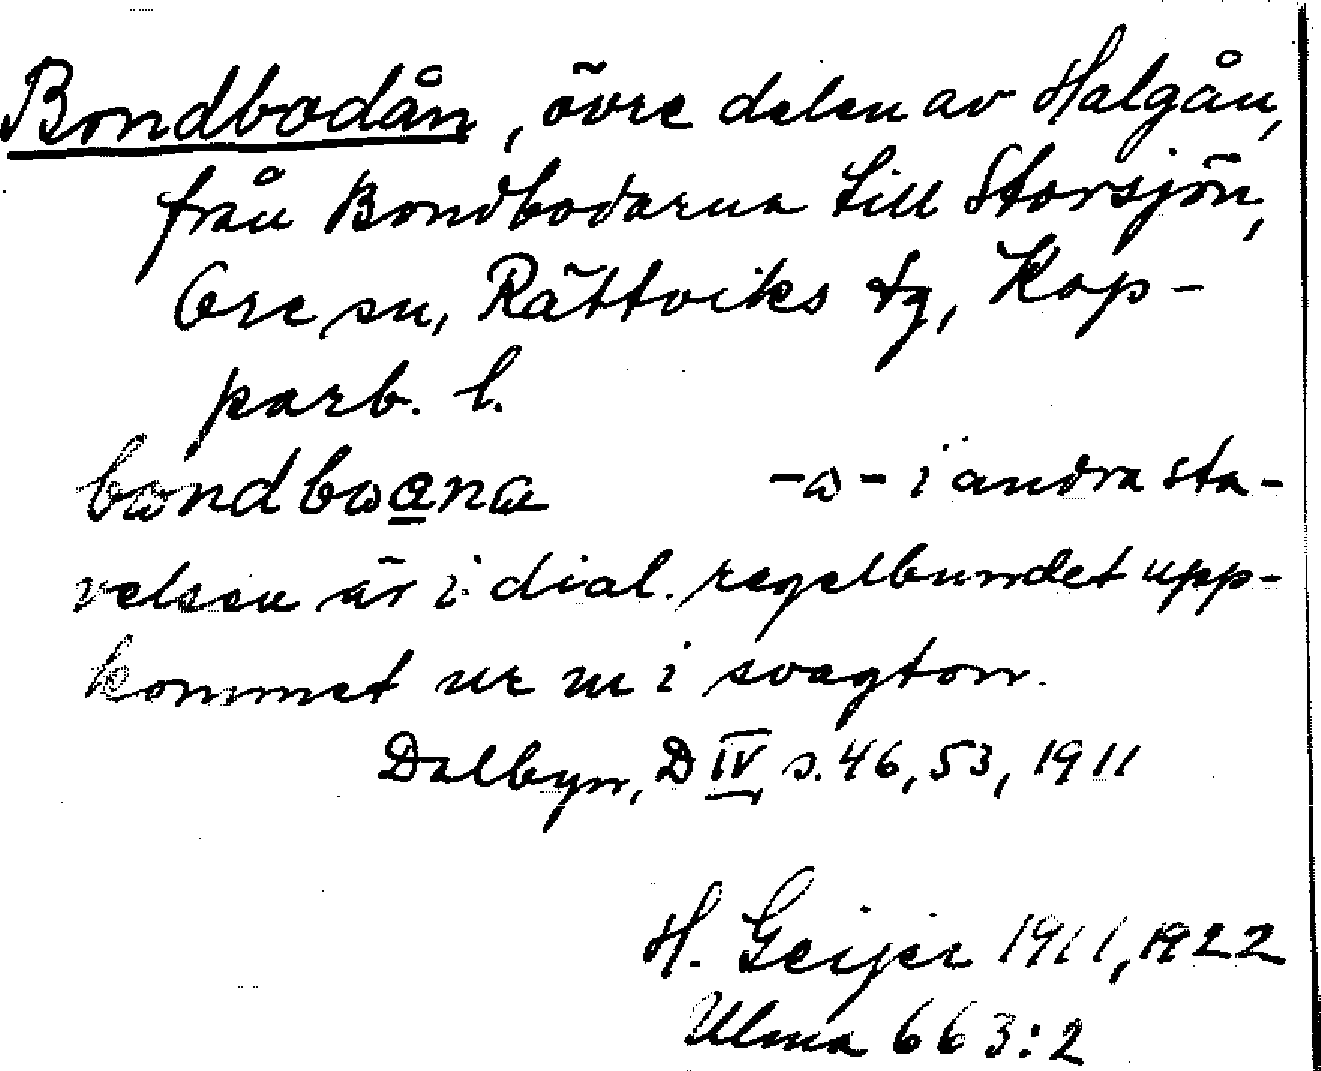 Bondbodån, övre delen av Halgån,
från Bondbodarna till Storsjön,
Ore sn, Rättviks tg, Kop-
parb. l.
bondboana -a- i andra sta-
velsen är i dial. regelbundet upp-
kommet ur ω i svagton.
Dalbyn, D IV s. 46, 53, 1911
H. Geijer 1911, 1922
Ulma 663:2